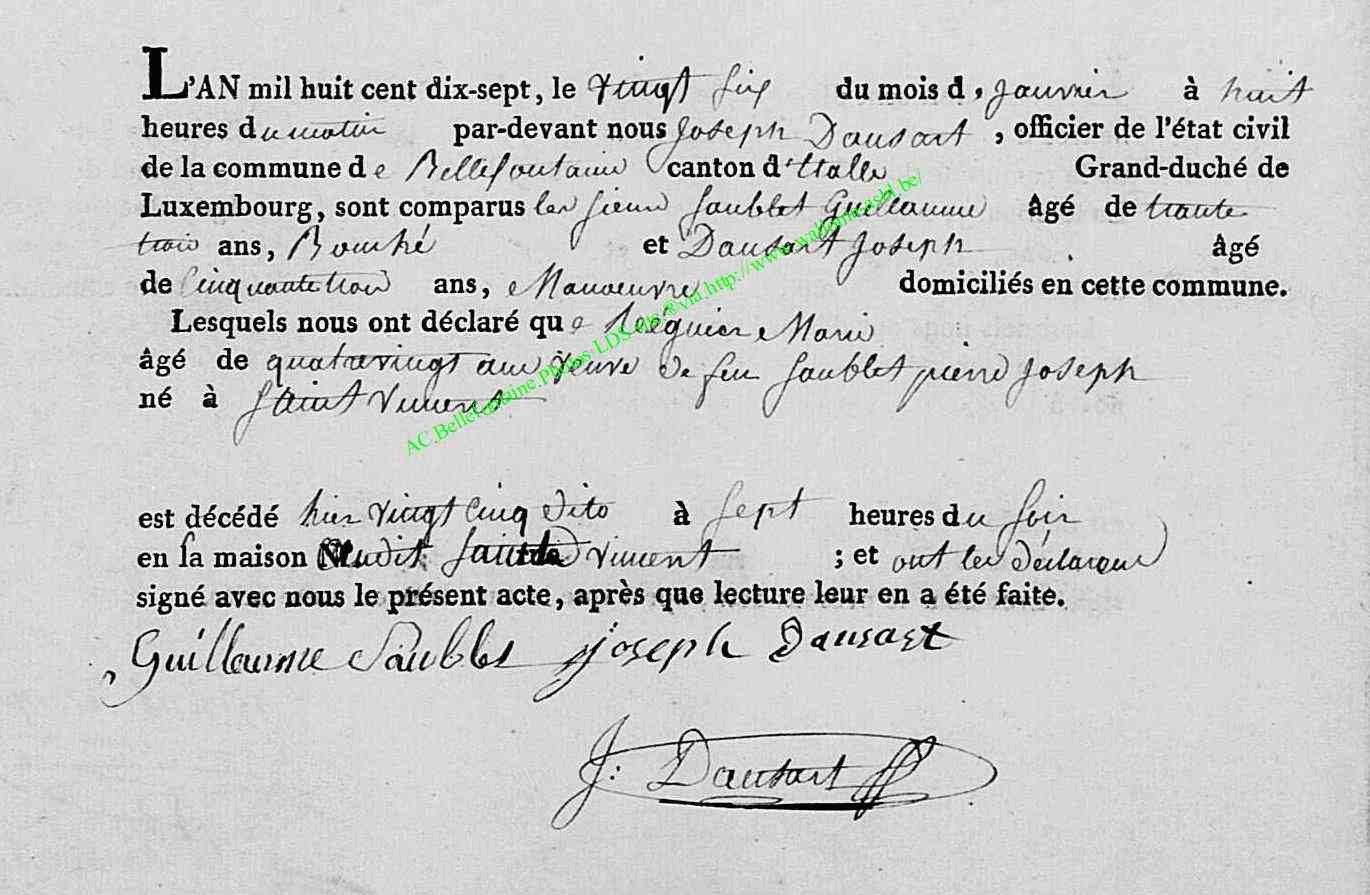 L'AN mil huit cent dix-sept, le vingt six du mois d, janvier à huit
heures du matin par-devant nous Joseph Dausart, officier de l'état civil
de la commune de Bellefontaine canton d'Etalle Grand-duché de
Luxembourg, sont comparus les sieurs Saublet Guillaume âgé de trante
trois ans, Bouché et Dausart Joseph âgé
de Cinquante trois ans, Manoeuvre domiciliés en cette commune.
Lesquels nous ont déclaré que Marie
âgé de quatrevingt ans veuve de feu Saublet pierre Joseph
né à Saint Vincent
est décédé hier vingt cinq dito à sept heures du soir
en sa maison audit Saint Vincent ; et ont les déclarans
signé avec nous le présent acte, après que lecture leur en a été faite.
Guillaume Saublet joseph Dausart
J: Dausart
AC.Bellefontaine.Photos-LDS via http://www.